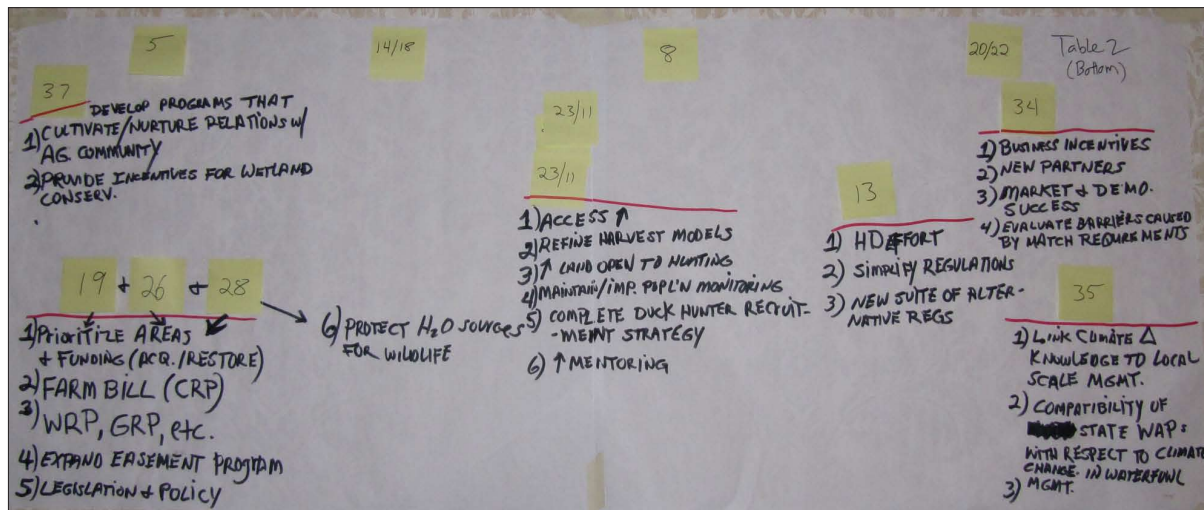 5
14/18
8
20/22
Table 2
(Bottom)
37
DEVELOP PROGRAMS THAT
1) CULTIVATE/NURTURE RELATIONS W/
AG. COMMUNITY
2) PROVIDE INCENTIVES FOR WETLAND
CONSERV.
19 + 26 + 28
1) PRIORITIZE AREAS
+ FUNDING (ACQ./RESTORE)
2) FARM BILL (CRP)
3) WRP, GRP, etc.
4) EXPAND EASEMENT PROGRAM
5) LEGISLATION + POLICY
6) PROTECT H2O SOURCES
FOR WILDLIFE
23/11
23/11
1) ACCESS ↑
2) REFINE HARVEST MODELS
3) ↑ LAND OPEN TO HUNTING
4) MAINTAIN/IMP. POPL'N MONITORING
5) COMPLETE DUCK HUNTER RECRUIT-
-MENT STRATEGY
6) ↑ MENTORING
13
1) HD EFFORT
2) SIMPLIFY REGULATIONS
3) NEW SUITE OF ALTER-
NATIVE REGS
34
1) BUSINESS INCENTIVES
2) NEW PARTNERS
3) MARKET + DEMO.
SUCCESS
4) EVALUATE BARRIERS CAUSED
BY MATCH REQUREMENTS
35
1) LINK CLIMATE Δ
KNOWLEDGE TO LOCAL
SCALE MGMT.
2) COMPATIBILITY OF
STATE WAPs
WITH RESPECT TO CLIMATE
CHANGE. IN WATERFOWL
3) MGMT.